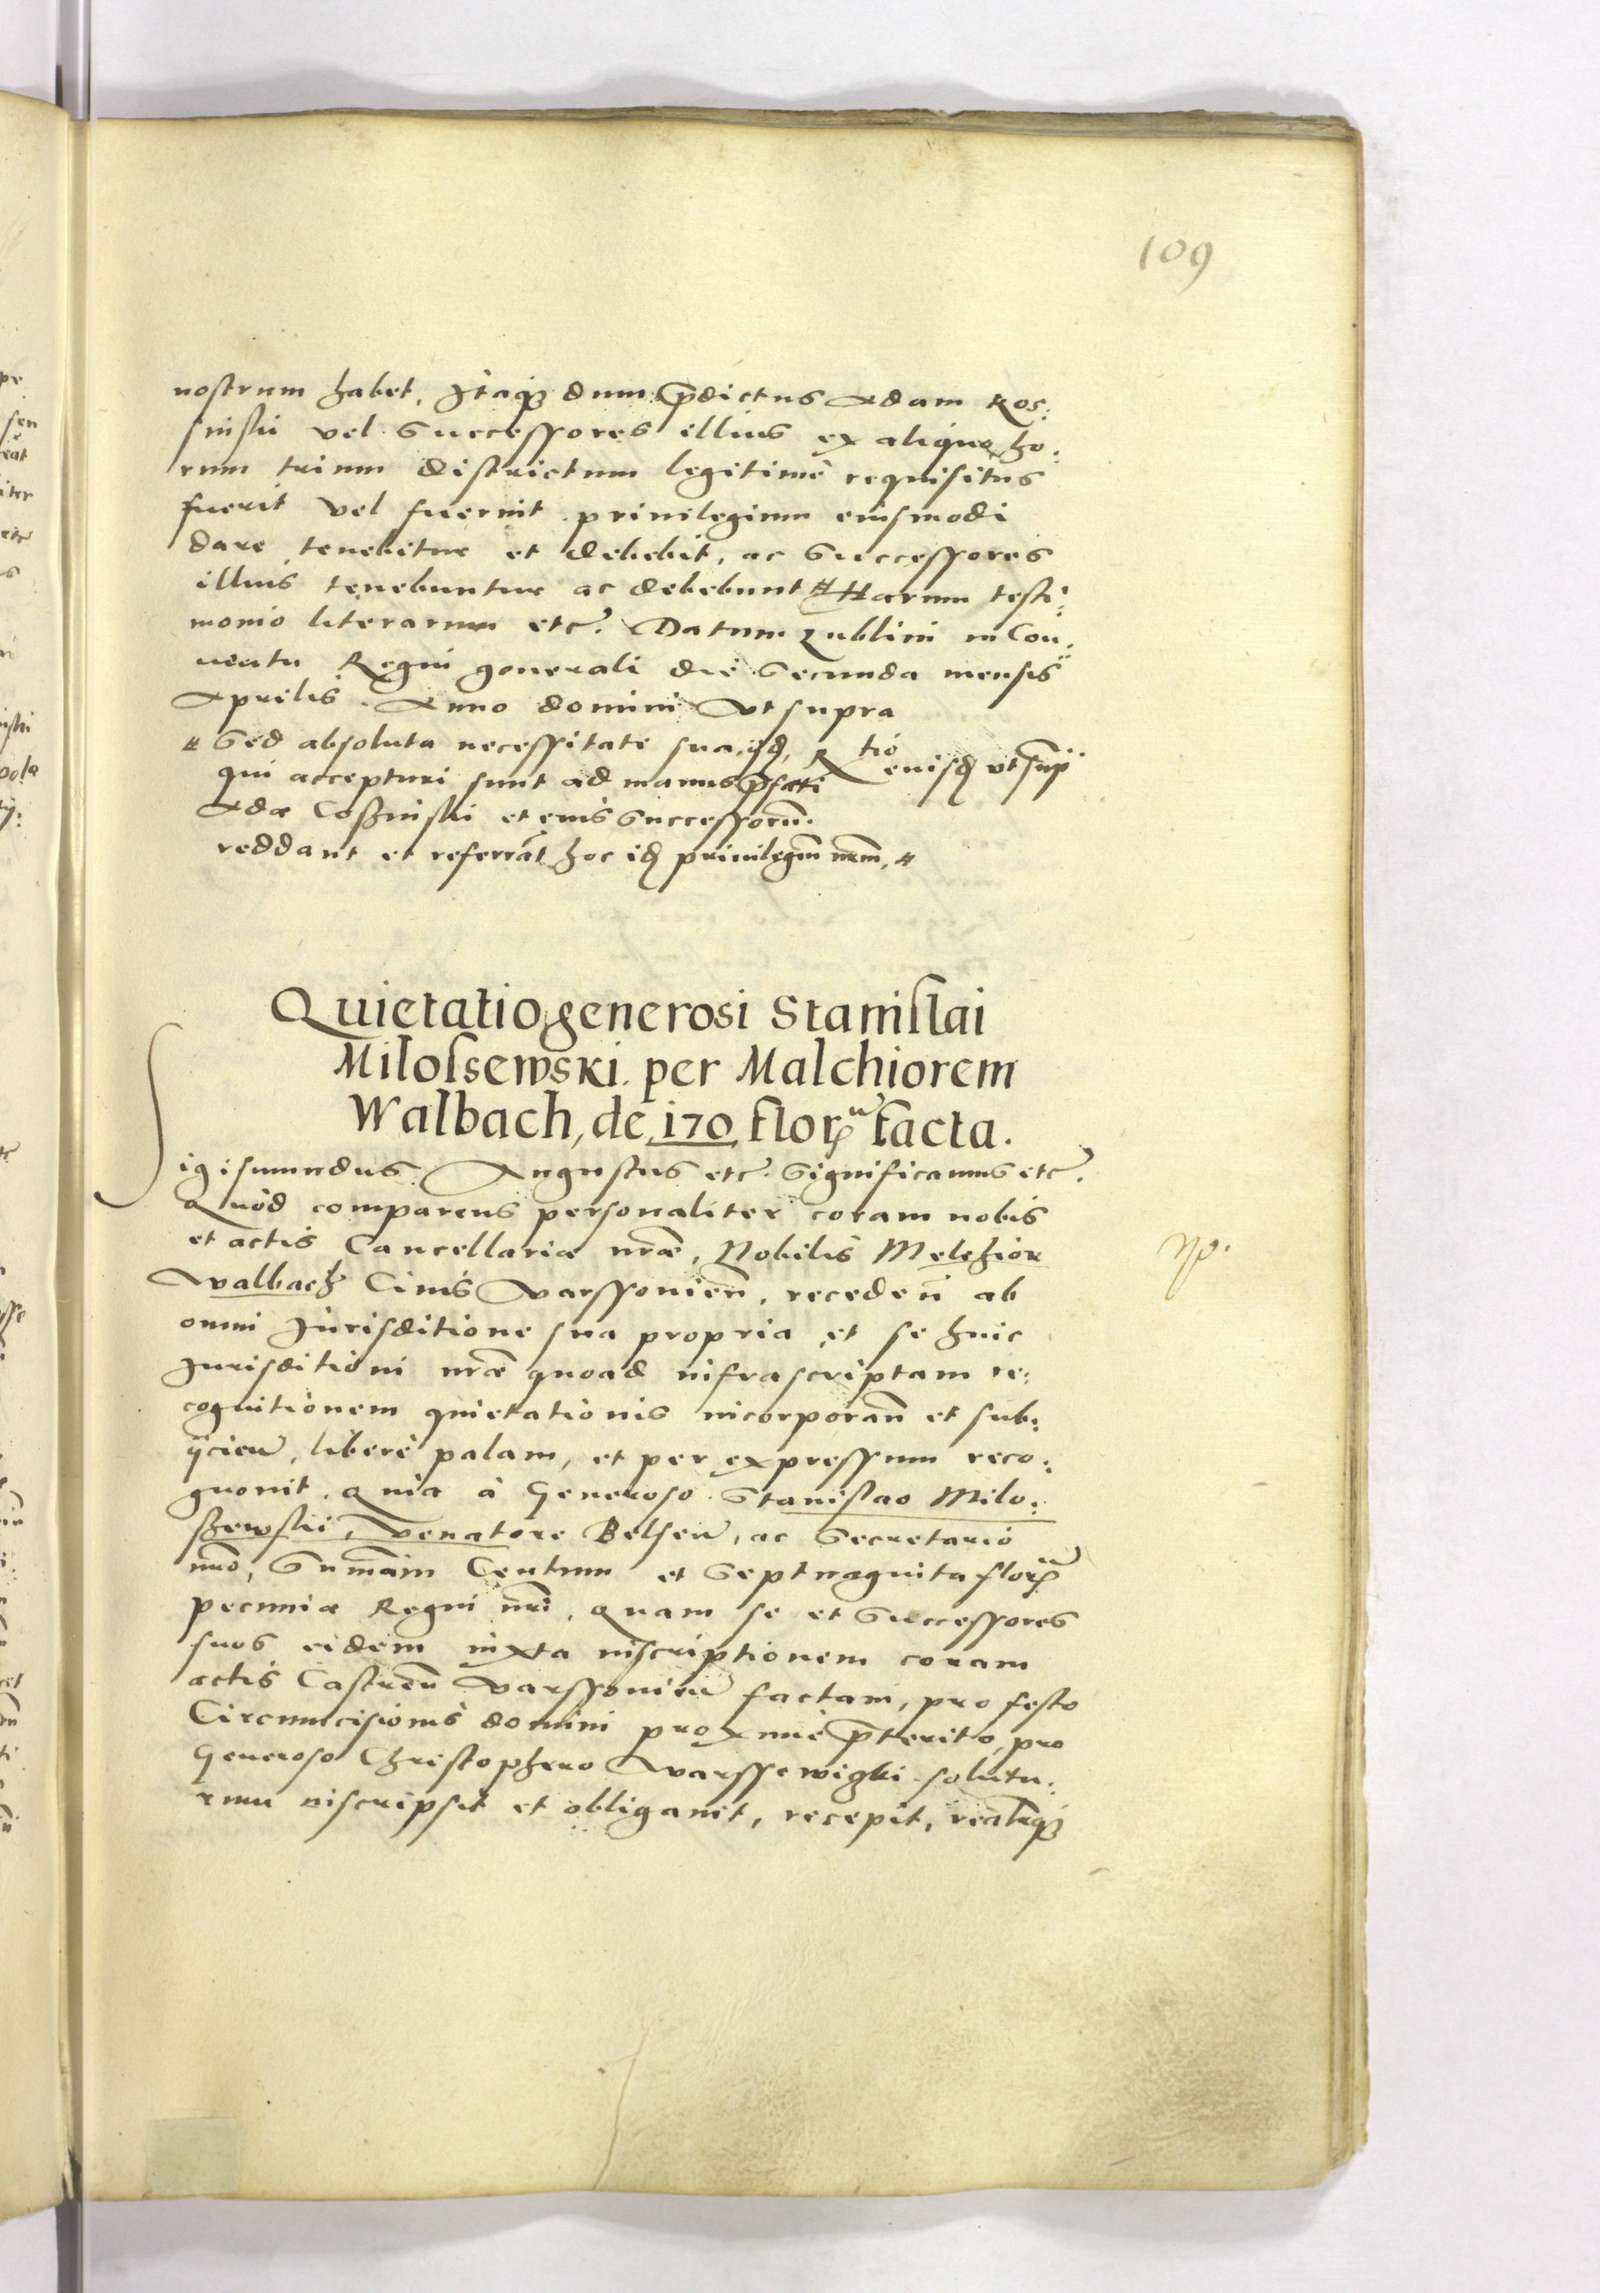 109
nostrum habet, Itaq₃ dum p̄dictus Adam Kos:
sinskii vel Successores illius ex aliquo ho:
rum trium districtuum legitime requisitus
fuerit vel fuerint privilegium eiusmodi
dare tenebitur et debebit, ac Successores
illius tenebuntur ac debebunt # Harum testi:
monio literarum etc. Datum Lublini in Con:
ventu Regni generali die Secunda mensis
Aprilis. Anno domini Ut supra
# Sed absoluta necessitate sua, R̃tio eiusd ut sup̃
qui accepturi sunt ad manus p̄fati
Adæ Coßinskii et eius Successorũ
reddant et referrãt hoc id privilegiũ nrm̃. #
Quietatio generosi Stanislai
Milossewski. per Malchiorem
Walbach, de 170 florꝝ facta.
Sigismundus Augustus etc. Significamus etc.
Quod comparens personaliter coram nobis
et actis Cancellariæ nr̃æ, Nobilis Melchior
Walbach Civis Varssovieñ, recedeñ ab
omni Iurisditione sua propria et se huic
Iurisditioni nr̃æ quoad infrascriptam re:
cognitionem quietationis incorporañ et sub:
ijcieñ, libere palam, et per expressum reco:
gnovit. Quia à Generoso Stanislao Milo:
ßewskii, Venatore Belseñ, ac Secretario
nr̃o, Sum̃am Centum et Septuaginta florꝝ
pecuniæ Regni nr̃i, quam se et Successores
suos eidem iuxta inscriptionem coram
actis Castreñ Varssovieñ factam, pro festo
Circumcisionis domini proxime p̄terito, pro
Generoso Christophero Varssewiczki solutu:
rum inscripsit et obligavit, recepit, realiterq₃